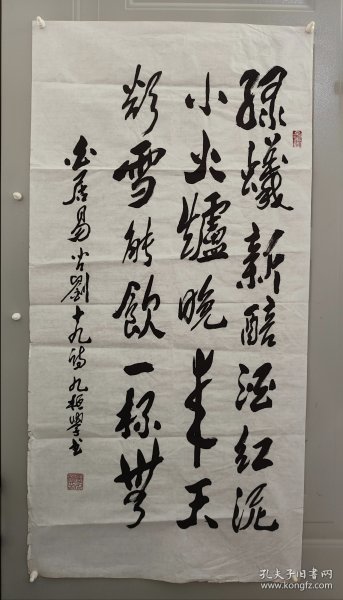 綠蟻新醅酒紅泥
小火爐晚來天
欲雪能飲一杯無
白居易問劉十九詩 九桓學书
孔夫子旧书网
book.kongfz.com